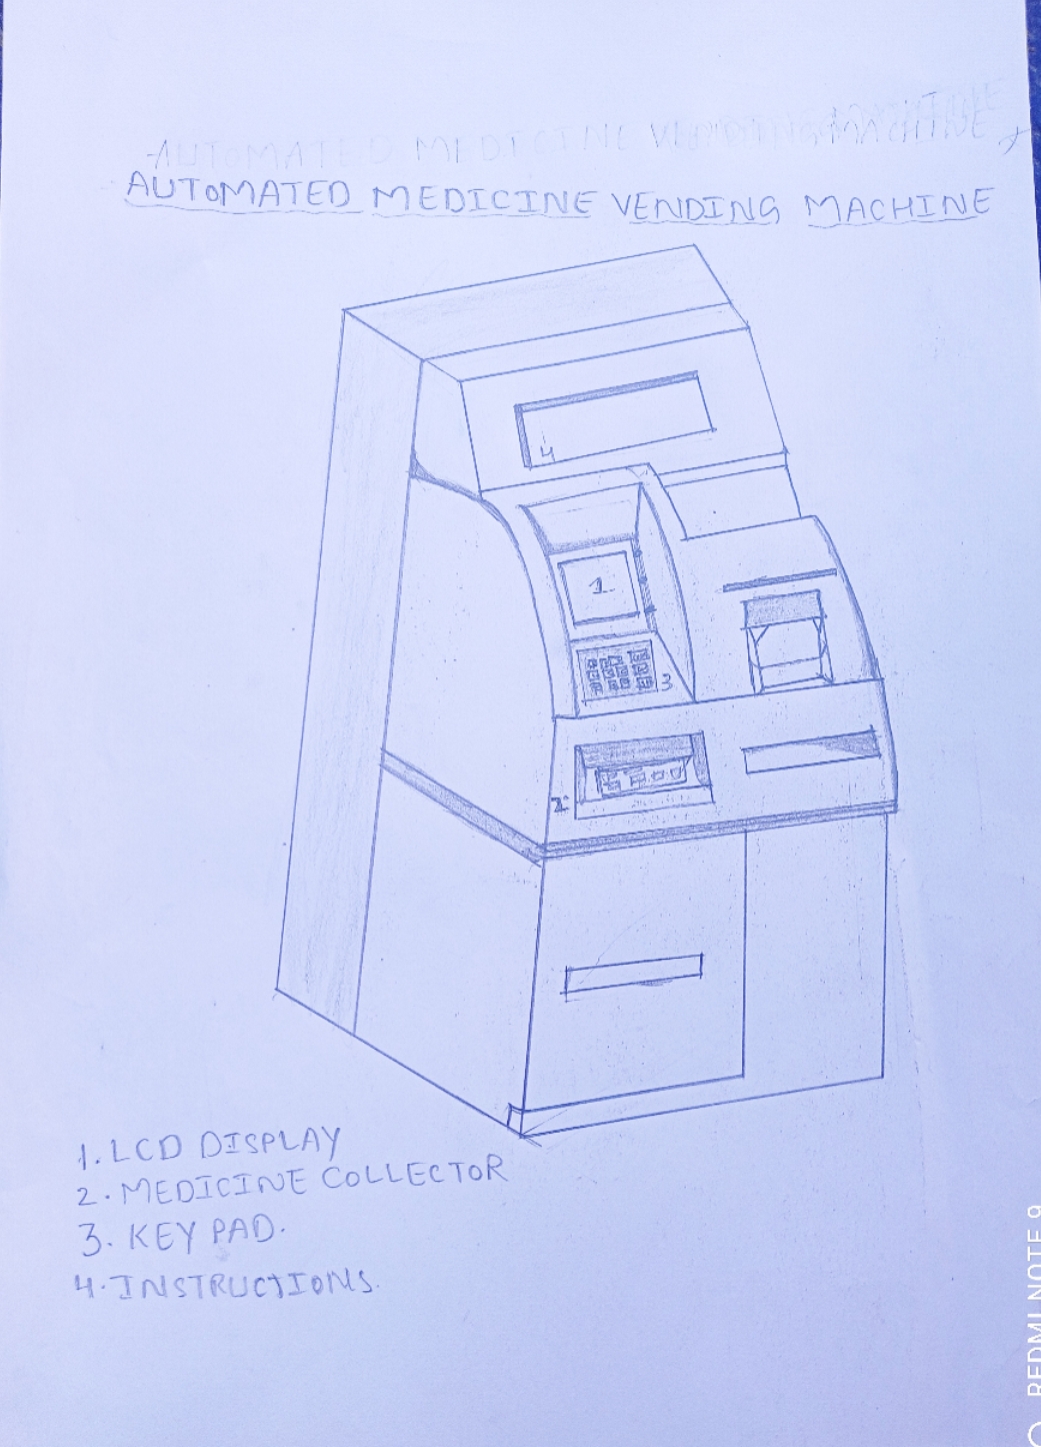 AUTOMATED MEDICINE VENDING MACHINE
AUTOMATED MEDICINE VENDING MACHINE
4
1
3
2
1. LCD DISPLAY
2. MEDICINE COLLECTOR
3. KEY PAD.
4. INSTRUCTIONS.
REDMI NOTE 9